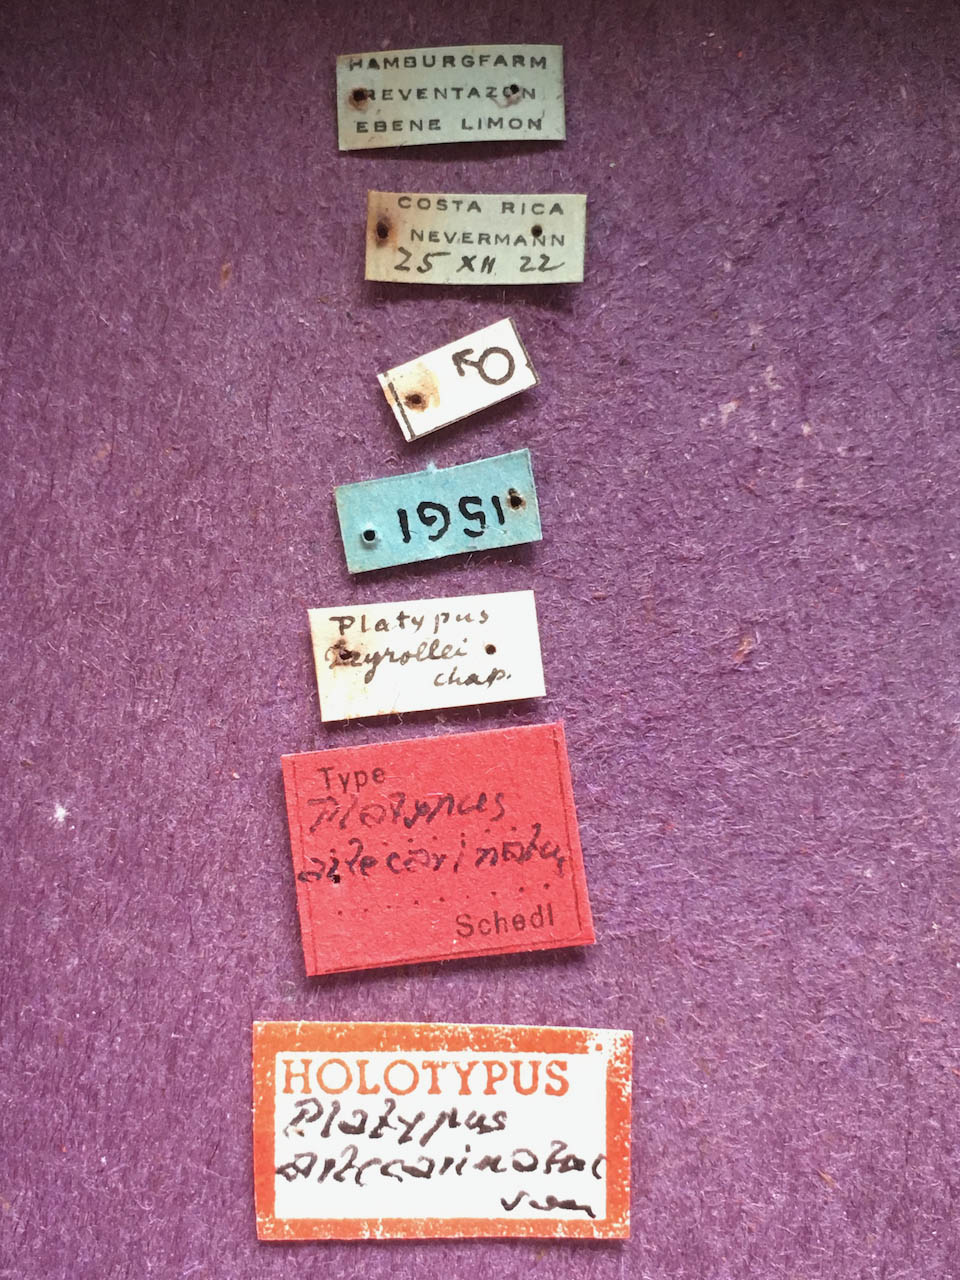 HAMBURGFARM
REVENTAZON
EBENE LIMON
COSTA RICA
NEVERMANN
25 XII 22
♂
1951
Platypus
Deyrollei
chap.
Type
Platypus
artecarinatus
Schedl
HOLOTYPUS
Platypus
artecarinatus